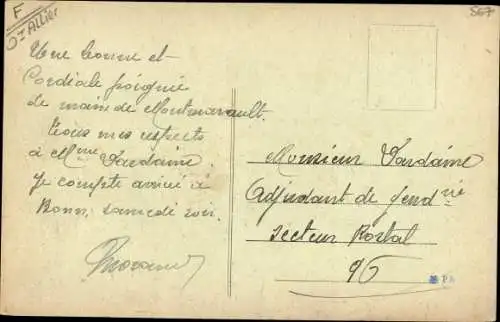 F
Dt Allier
567
Une bonne et
Cordiale poignée
de main de
Tous mes respects
à Mme Dardaine.
Je compte arrivé à
Bonn, samedi soir.
Monsieur Dardaine
Adjudant de gendrie
Secteur Postal
96